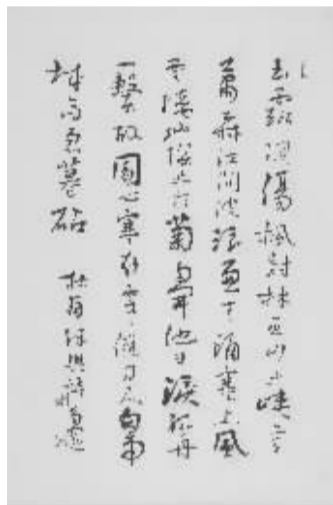 玉露凋傷楓樹林巫山巫峽氣
蕭森江間波浪兼天湧塞上風
雲接地陰叢菊兩開他日淚孤舟
一繫故園心寒衣處處催刀尺白帝
城高急暮砧 杜甫秋興詩